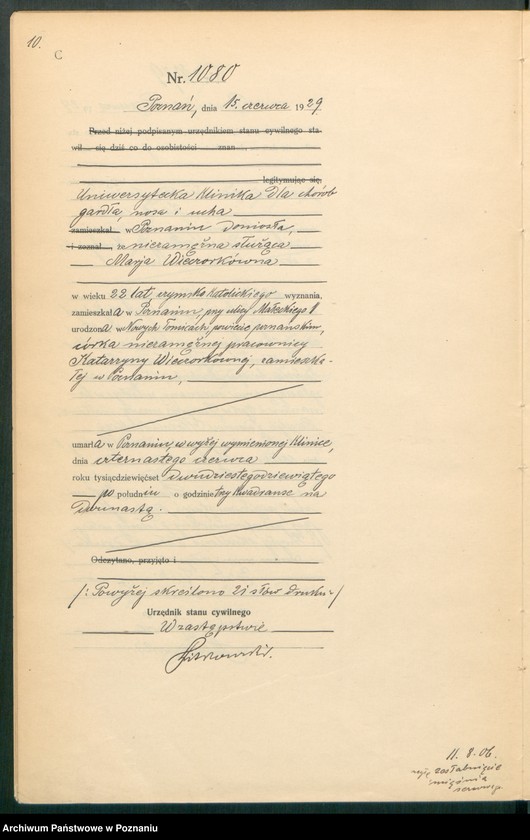 10.
C
Nr. 1080
Poznań, dnia 15 czerwca 1929
Przed niżej podpisanym urzędnikiem stanu cywilnego sta-
wił się dziś co do osobistości znan
legitymując się,
Uniwersytecka Klinika dla chorób
gardła, nosa i ucha
zamieszkał w Poznaniu doniosła,
i zeznał, że niezamężna służąca
Marja Wieczorkówna
w wieku 22 lat, rzymsko katolickiego wyznania,
zamieszkała w Poznaniu, przy ulicy Małeckiego 8
urodzona w Nowych Łomicach, powiecie poznańskim,
córka niezamężnej pracownicy
Katarzyny Wieczorkównej, zamieszka-
łej w Poznaniu,
umarła w Poznaniu, w wyżej wymienionej Klinice,
dnia czternastego czerwca
roku tysiącdziewięćset dwudziestegodziewiątego
po południu o godzinie trzy kwadranse na
dwunastą.
Odczytano, przyjęto i
/: Powyżej skreślono 21 słów druku :/
Urzędnik stanu cywilnego
W zastępstwie
11. 8. 06.
Archiwum Państwowe w Poznaniu